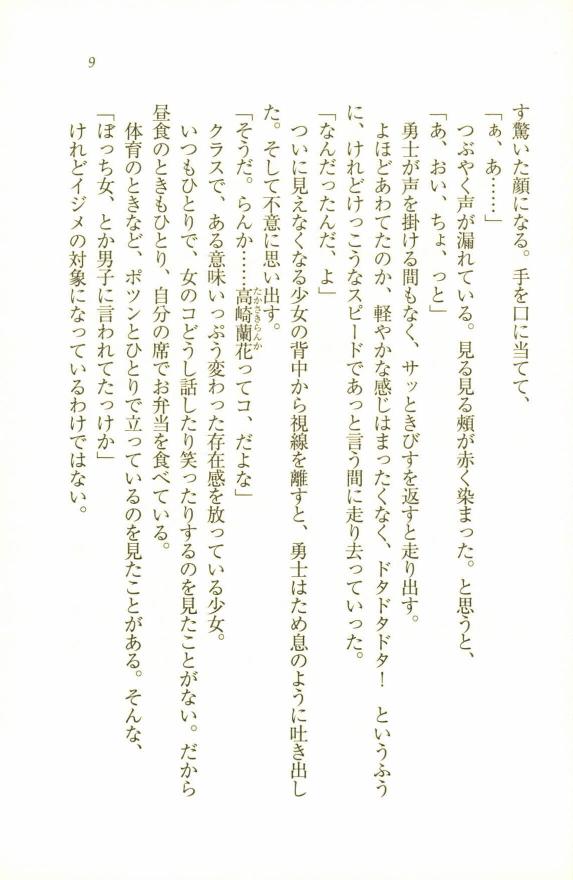 9
す驚いた顔になる。手を口に当てて、
「ぁ、あ……」
つぶやく声が漏れている。見る見る頰が赤く染まった。と思うと、
「あ、おい、ちょ、っと」
勇士が声を掛ける間もなく、サッときびすを返すと走り出す。
よほどあわてたのか、軽やかな感じはまったくなく、ドタドタドタ！　というふう
に、けれどけっこうなスピードであっと言う間に走り去っていった。
「なんだったんだ、よ」
ついに見えなくなる少女の背中から視線を離すと、勇士はため息のように吐き出し
た。そして不意に思い出す。
「そうだ。らんか……高崎蘭花ってコ、だよな」
たかさきらんか
クラスで、ある意味いっぷう変わった存在感を放っている少女。
いつもひとりで、女のコどうし話したり笑ったりするのを見たことがない。だから
昼食のときもひとり、自分の席でお弁当を食べている。
体育のときなど、ポツンとひとりで立っているのを見たことがある。そんな、
「ぼっち女、とか男子に言われてたっけか」
けれどイジメの対象になっているわけではない。